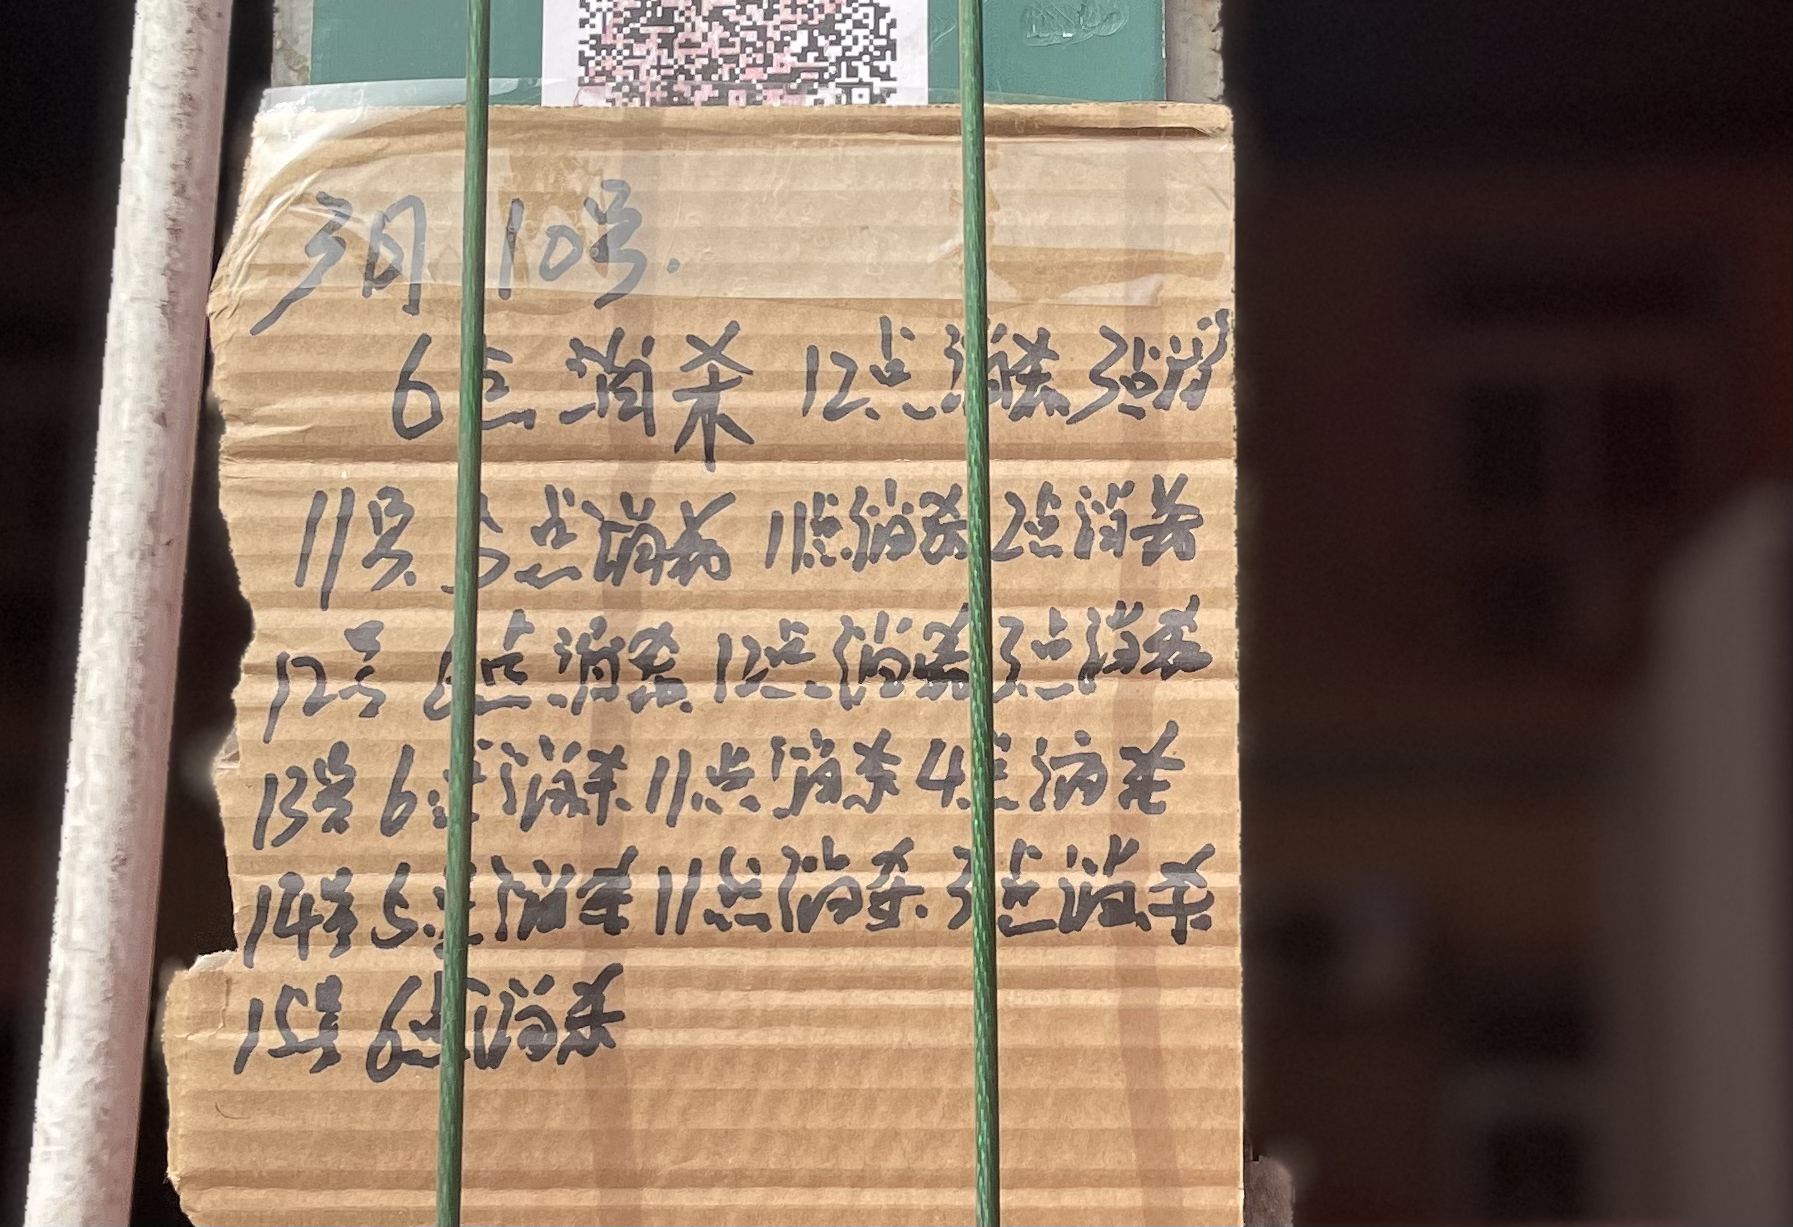 3月10号.
6点消杀 12点消杀 3点消
11号 5点消杀 11点消杀 2点消杀
12号 6点消杀 12点消杀 3点消杀
13号 6点消杀 11点消杀 4点消杀
14号 5点消杀 11点消杀 3点消杀
15号 6点消杀